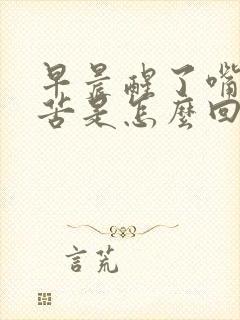 早晨醒了嘴
苦是怎麼回
言荒